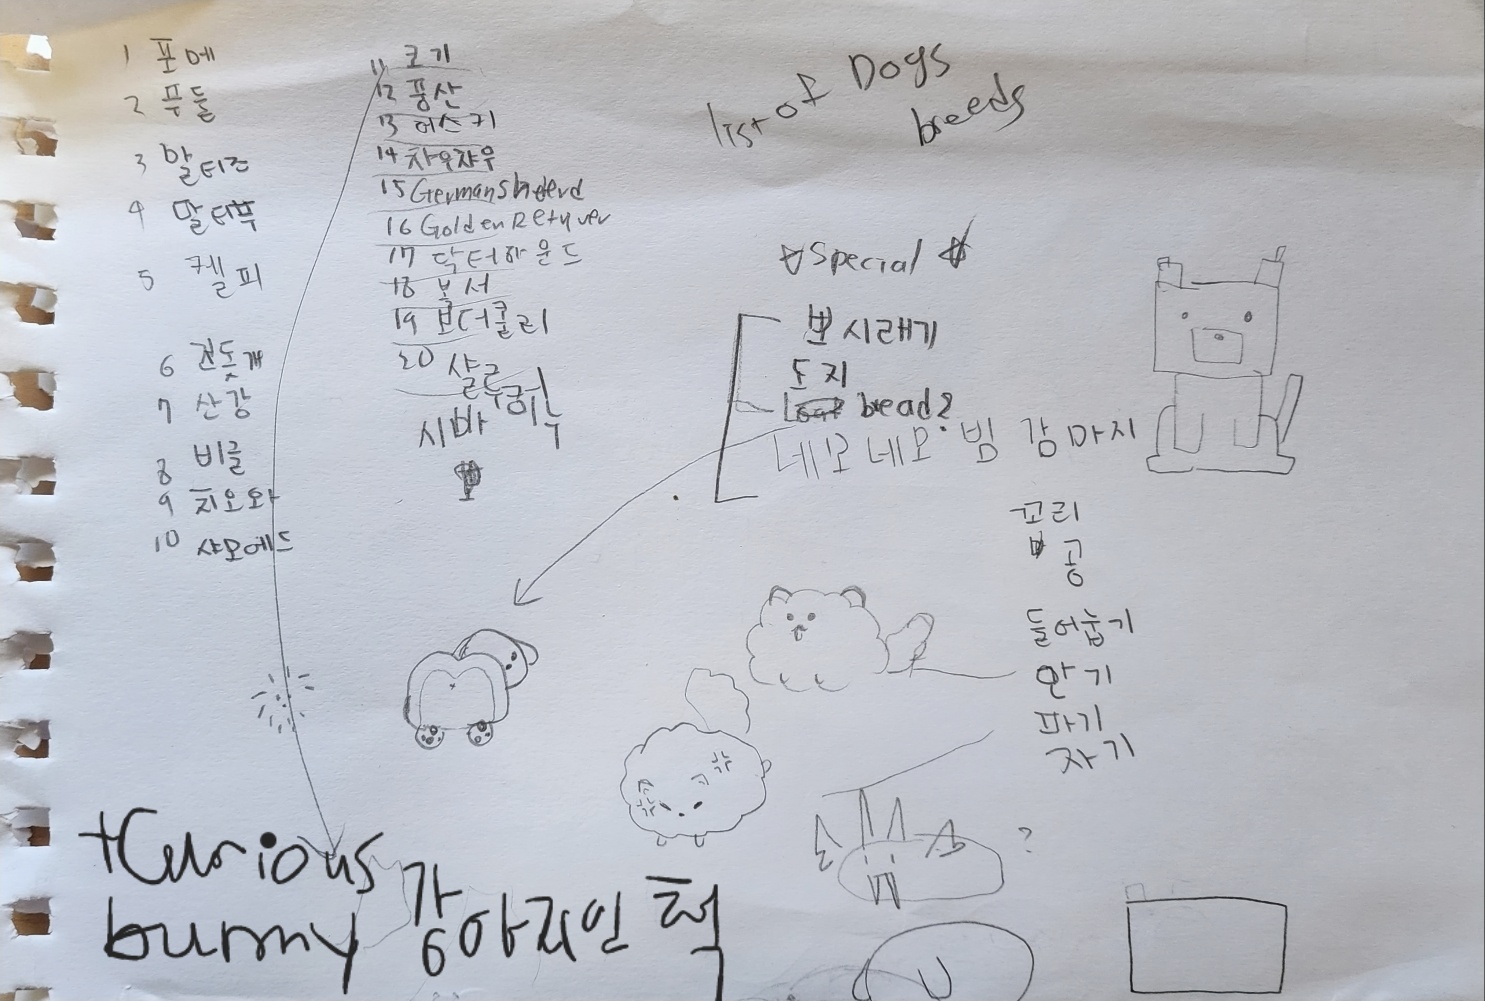 1 포메
2 푸들
3 말티즈
4 말티푸
5 켈피
6 진돗개
7 산강
8 비글
9 치오와
10 샤모에드
11 코기
12 풍산
13 허스키
14 차우차우
15 German Sheherd
16 Golden Retriver
17 닥터하운드
18 복서
19 보더콜리
20 살루
시바
list of Dogs
breeds
☆Special☆
뽀시래기
도지
bread?
네모네모 빔 강아지
꼬리
공
들어눕기
안기
파기
자기
?
+Curious
bunny 강아지인 척